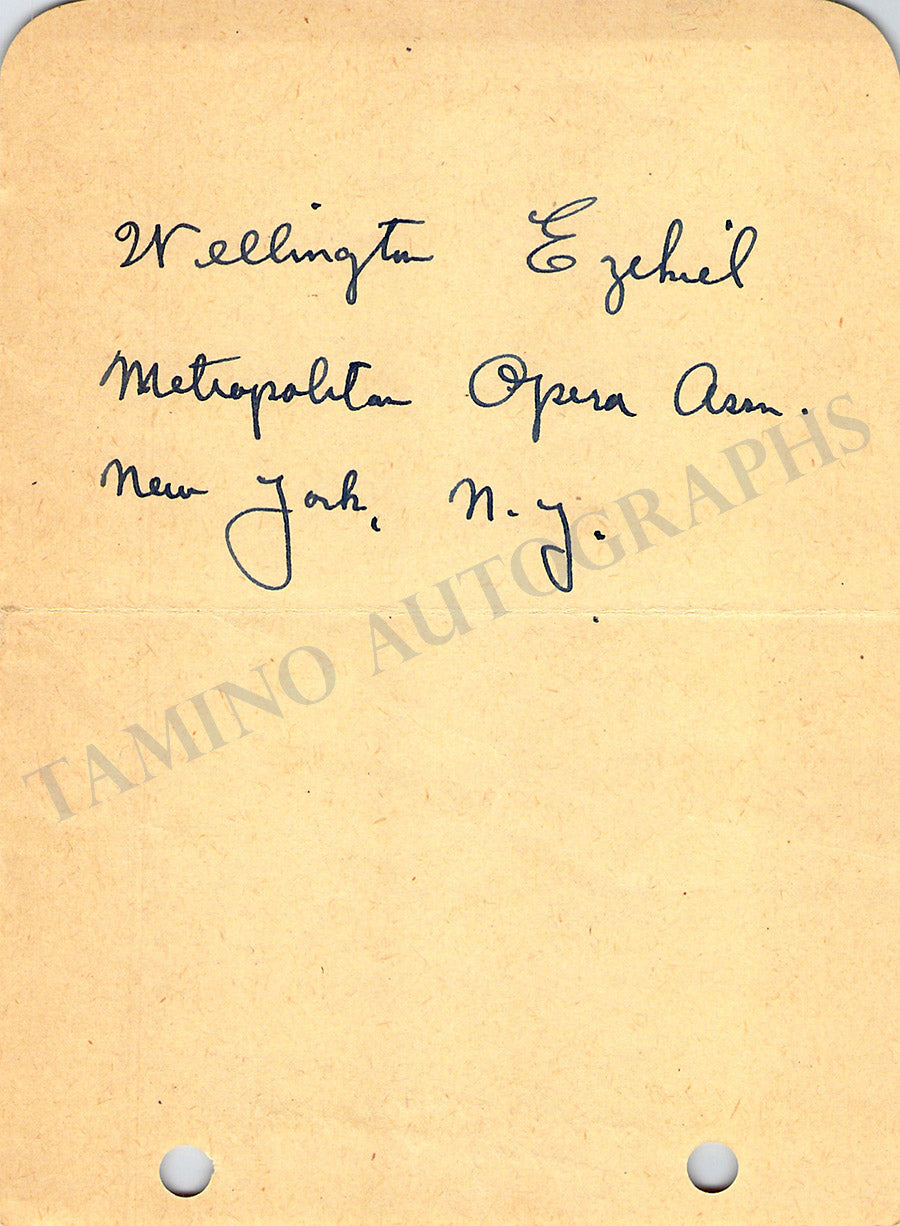 Wellington Ezekiel
Metropolitan Opera Assn.
New York, N.Y.
TAMINO AUTOGRAPHS